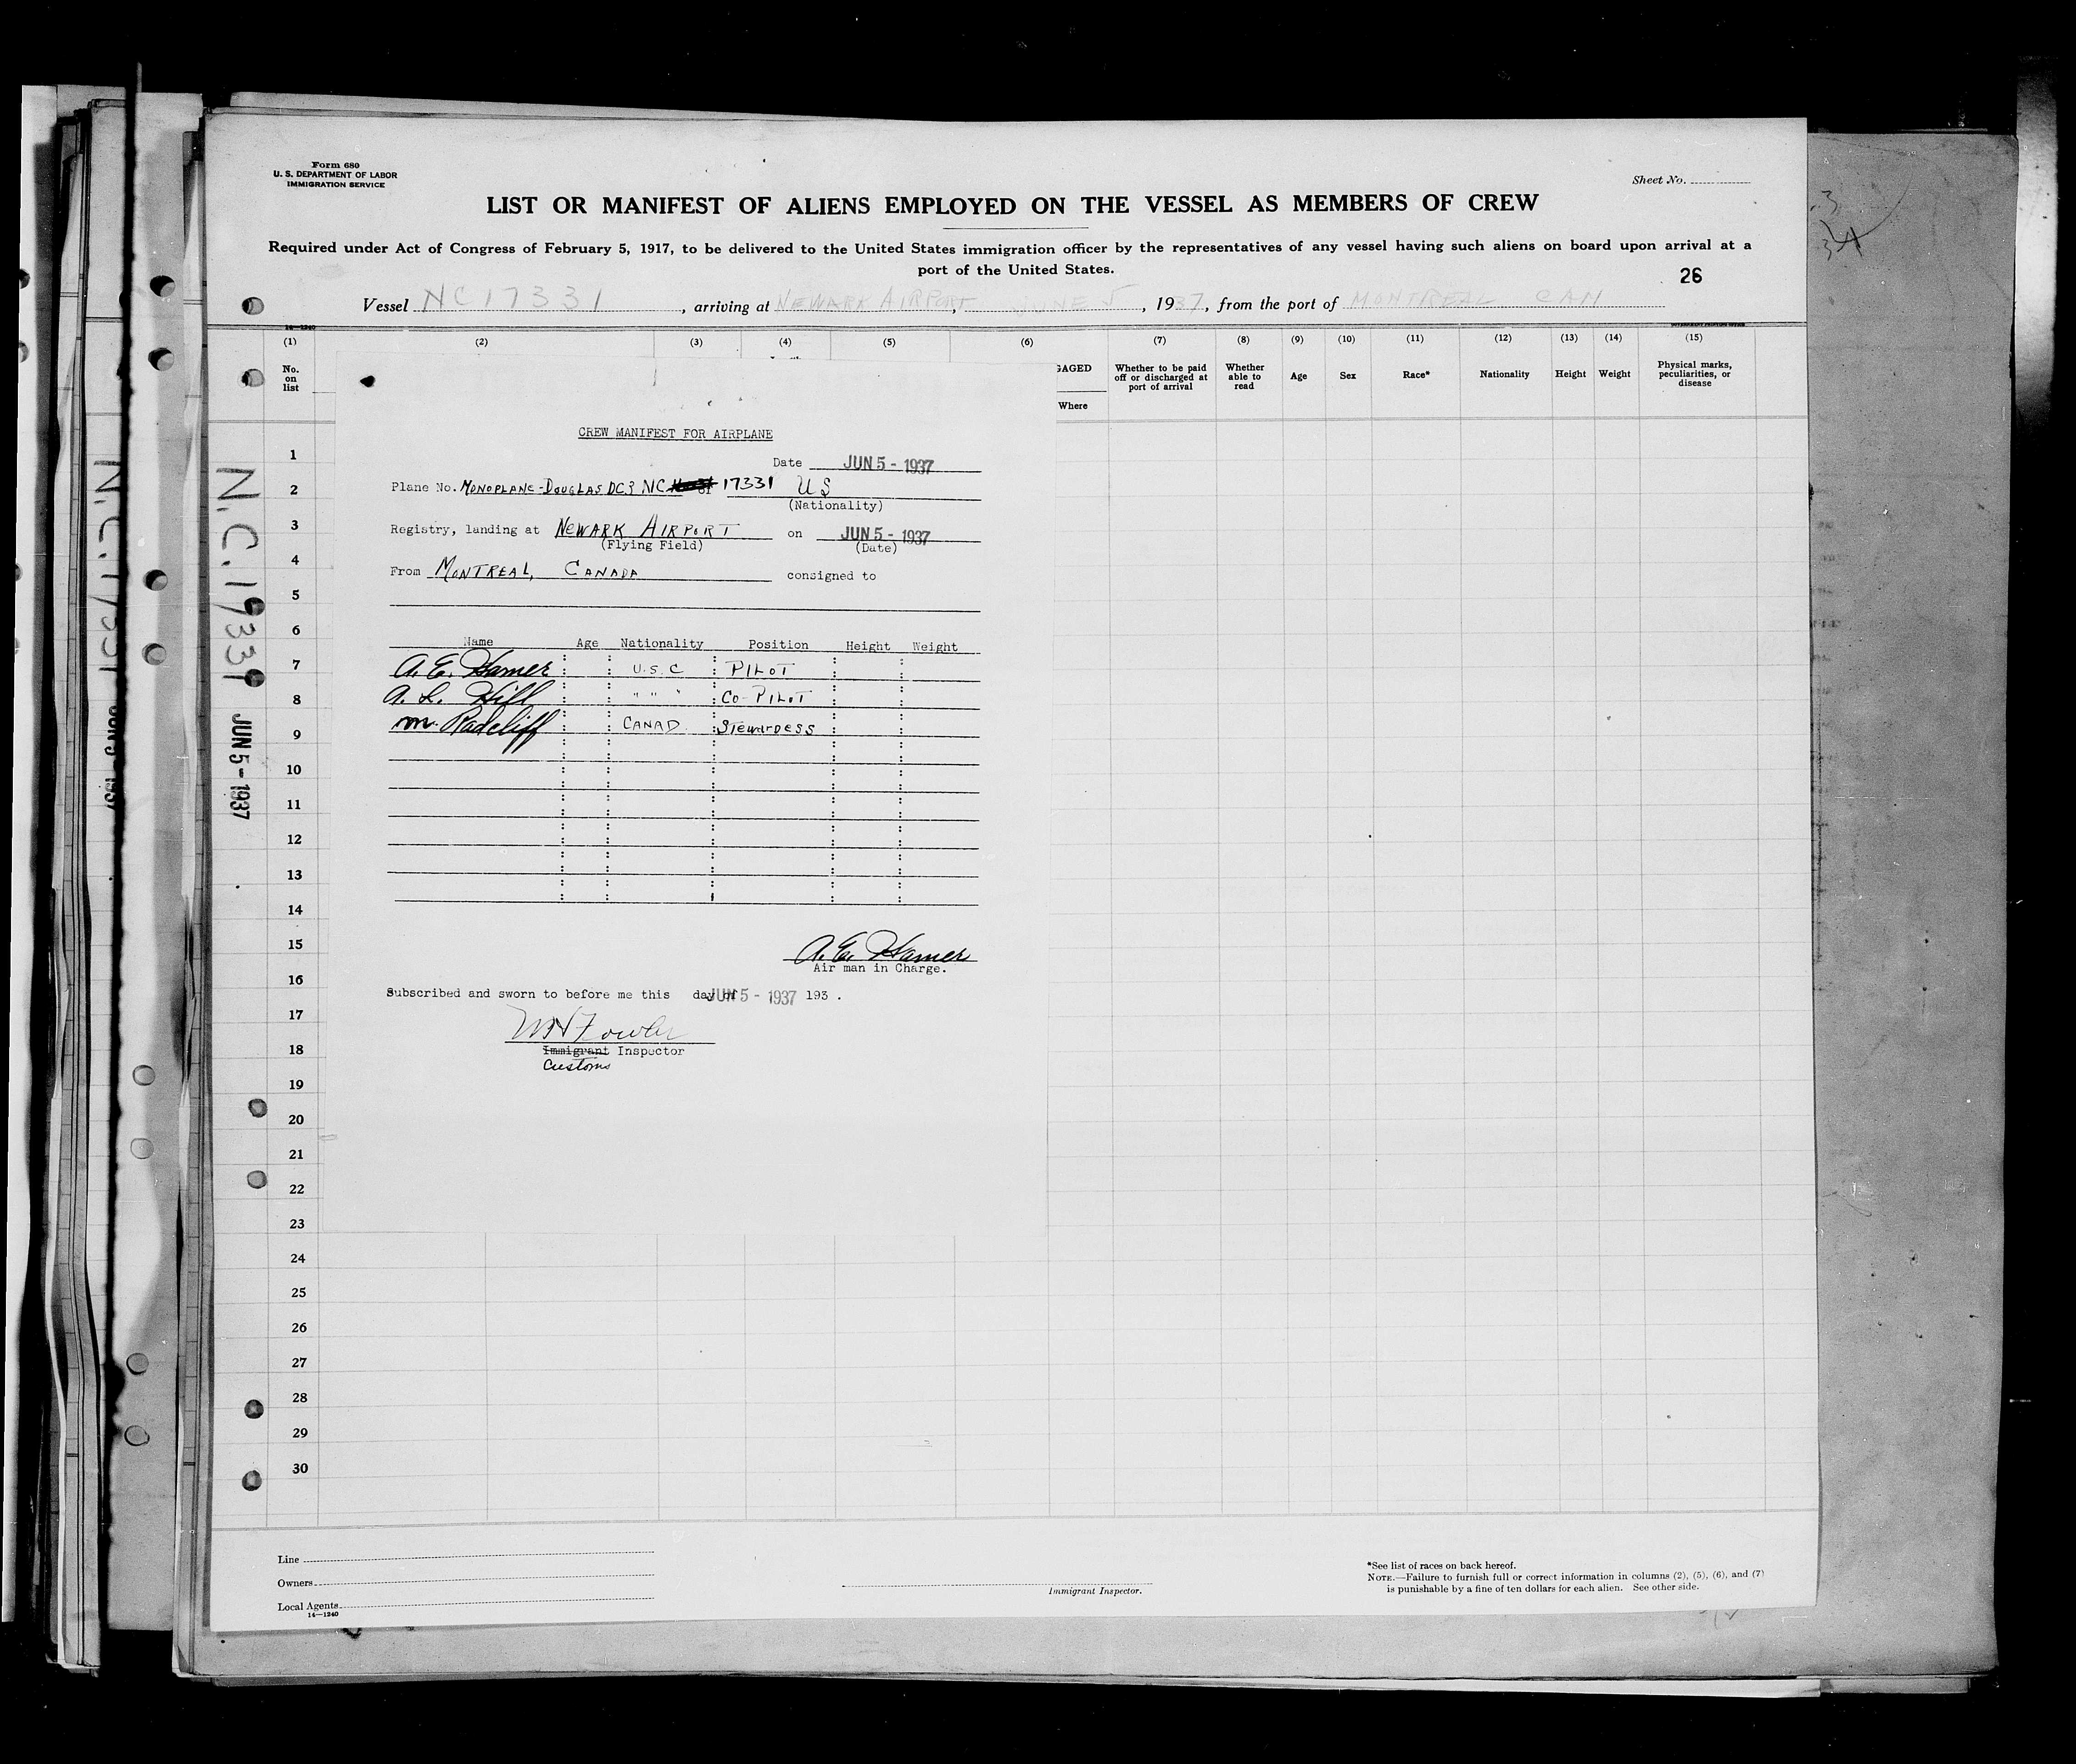 Form 680
U. S. DEPARTMENT OF LABOR
IMMIGRATION SERVICE
Sheet No.
LIST OR MANIFEST OF ALIENS EMPLOYED ON THE VESSEL AS MEMBERS OF CREW
Required under Act of Congress of February 5, 1917, to be delivered to the United States immigration officer by the representatives of any vessel having such aliens on board upon arrival at a
port of the United States.
26
Vessel NC17331, arriving at NEWARK AIRPORT, JUNE 5, 1937, from the port of MONTREAL CAN
14—1240
(1) (2) (3) (4) (5) (6) (7) (8) (9) (10) (11) (12) (13) (14) (15)
No. on list
GAGED
Where
Whether to be paid off or discharged at port of arrival
Whether able to read
Age
Sex
Race*
Nationality
Height
Weight
Physical marks, peculiarities, or disease
N.C.17331 JUN 5 - 1937
N.C.17331
CREW MANIFEST FOR AIRPLANE
Date JUN 5 - 1937
Plane No. MONOPLANE-DOUGLAS DC3 NC of 17331 US
(Nationality)
Registry, landing at NEWARK AIRPORT on JUN 5 - 1937
(Flying Field) (Date)
From MONTREAL, CANADA consigned to
Name Age Nationality Position Height Weight
A. E. Hamer U.S.C PILOT
A. L. Hill " " " CO-PILOT
M. Radcliff CANAD. Stewardess
A. E. Hamer
Air man in Charge.
Subscribed and sworn to before me this day of JUN 5 - 1937 193 .
Fowler
Immigrant Inspector
Customs
1
2
3
4
5
6
7
8
9
10
11
12
13
14
15
16
17
18
19
20
21
22
23
24
25
26
27
28
29
30
Line
Owners
Local Agents
14—1240
Immigrant Inspector.
*See list of races on back hereof.
NOTE.—Failure to furnish full or correct information in columns (2), (5), (6), and (7)
is punishable by a fine of ten dollars for each alien. See other side.